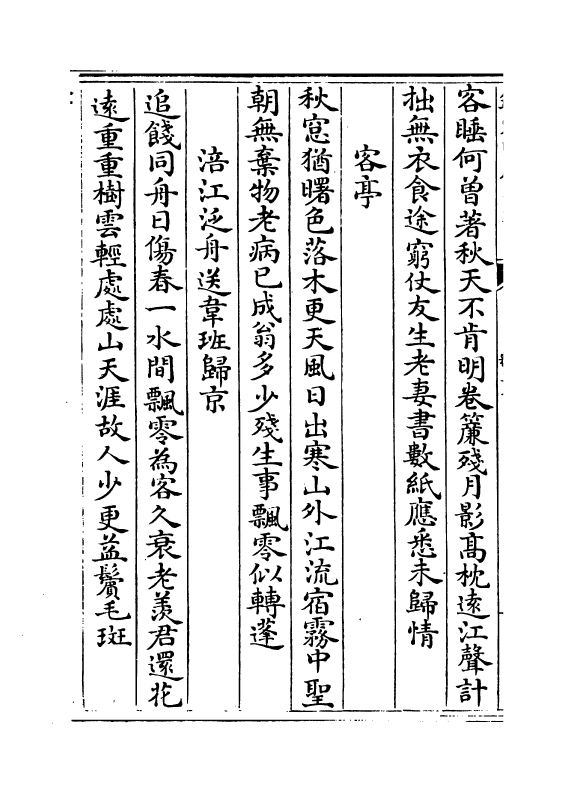 客睡何曾著秋天不肯明卷簾殘月影髙枕遠江聲計
拙無衣食途窮仗友生老妻書數紙應悉未歸情
客亭
秋窓猶曙色落木更天風日出寒山外江流宿霧中聖
朝無棄物老病已成翁多少殘生事飄零似轉蓬
涪江泛舟送韋班歸京
追餞同舟日傷春一水間飄零為客久衰老羨君還花
遠重重樹雲輕處處山天涯故人少更益鬢毛斑